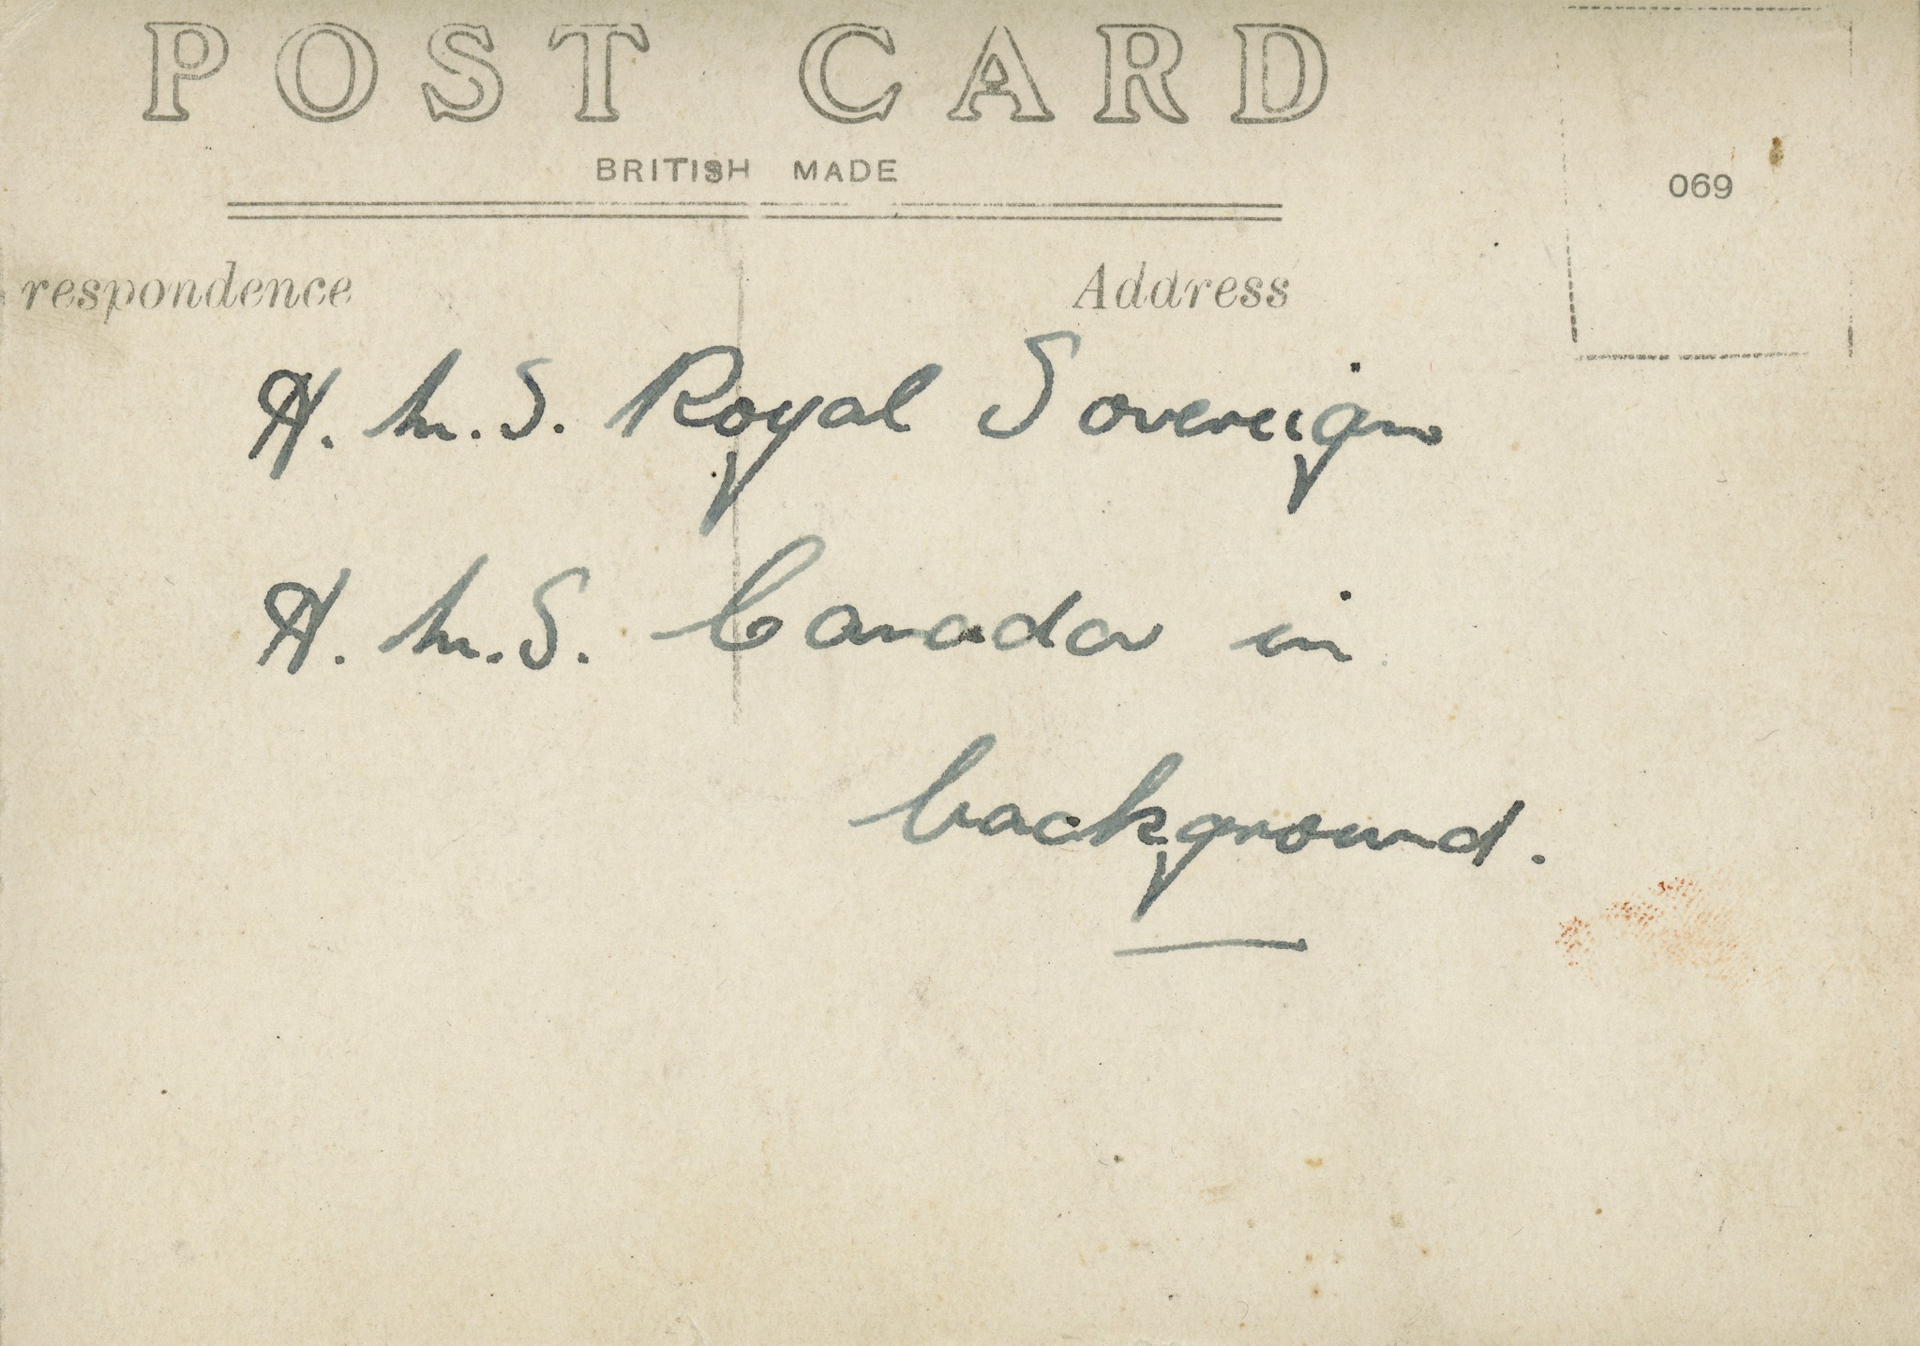 POST CARD
BRITISH MADE
069
respondence
Address
H.M.S. Royal Sovereign
H.M.S. Canada in
background.